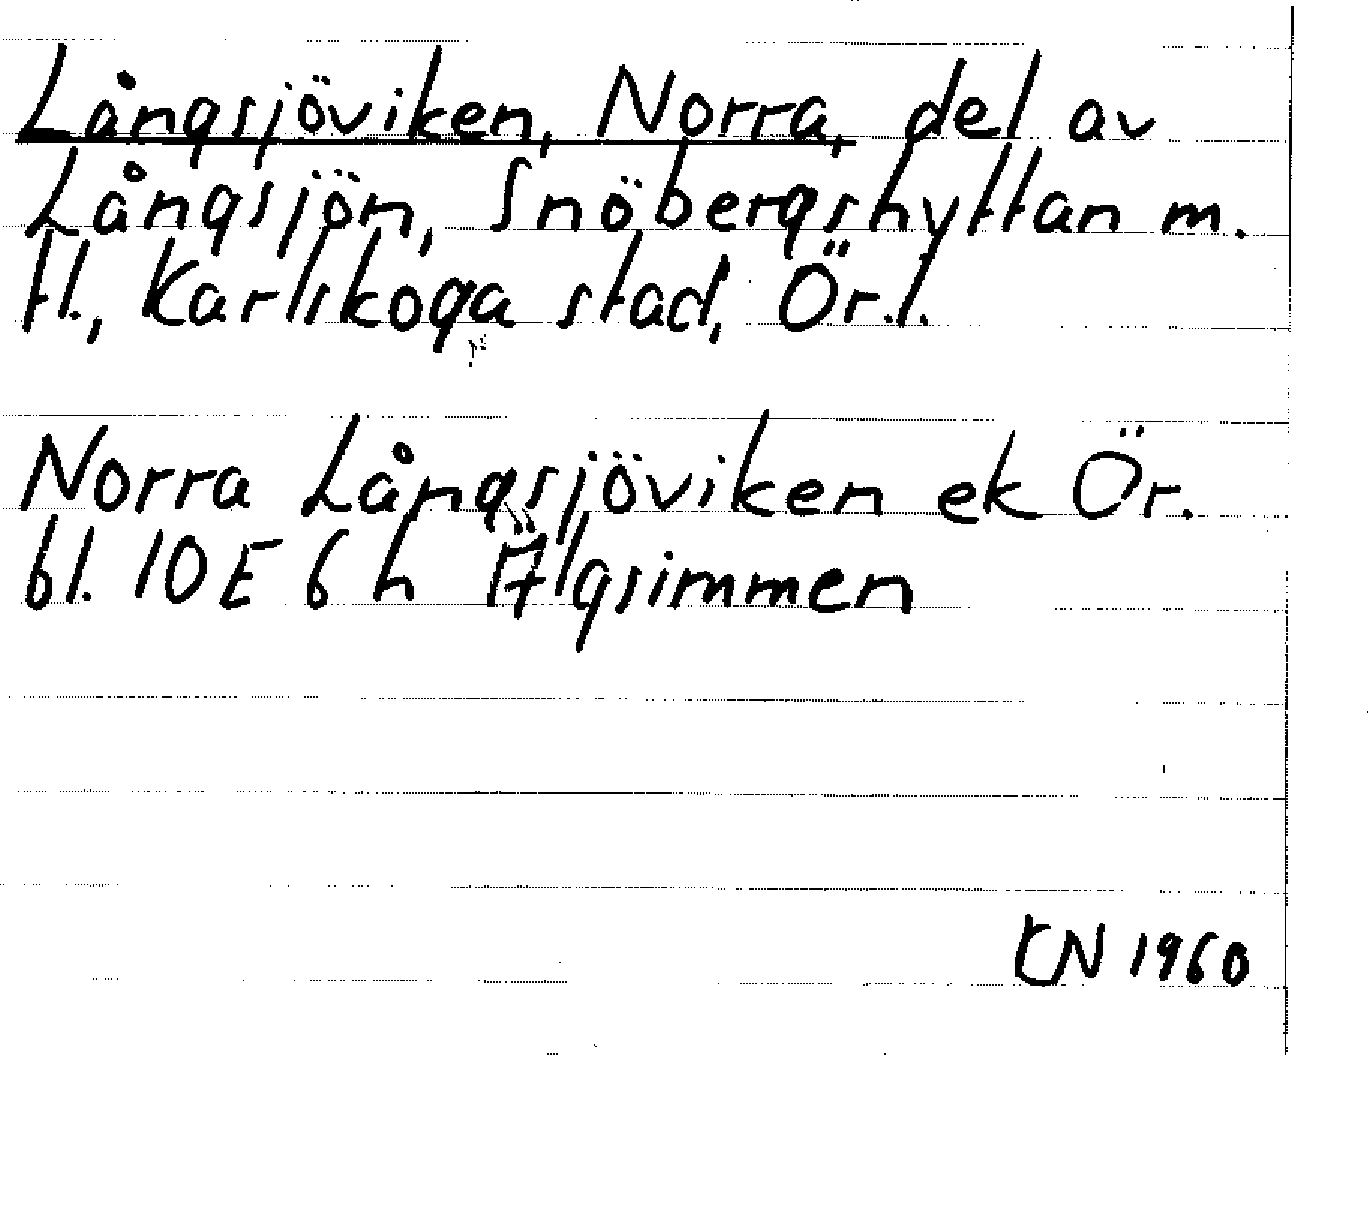 Långsjöviken, Norra, del av
Långsjön, Snöbergshyttan m.
fl., Karlskoga stad, Ör.l.
Norra Långsjöviken ek Ör.
bl. 10E 6 h Älgsimmen
CN 1960